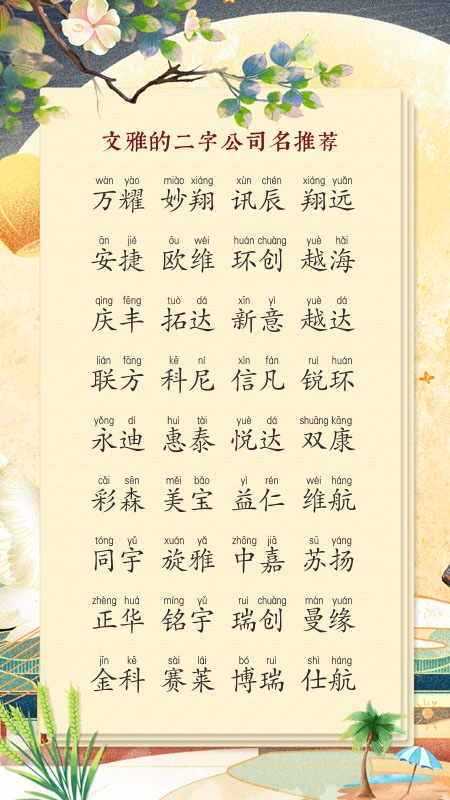 文雅的二字公司名推荐
wàn yào miào xiáng xùn chén xiáng yuǎn
万耀 妙翔 讯辰 翔远
ān jié ōu wéi huán chuàng yuè hǎi
安捷 欧维 环创 越海
qìng fēng tuò dá xīn yì yuè dá
庆丰 拓达 新意 越达
lián fāng kē ní xìn fán ruì huán
联方 科尼 信凡 锐环
yǒng dí huì tài yuè dá shuāng kāng
永迪 惠泰 悦达 双康
cǎi sēn měi bǎo yì rén wéi háng
彩森 美宝 益仁 维航
tóng yǔ xuán yǎ zhōng jiā sū yáng
同宇 旋雅 中嘉 苏扬
zhèng huá míng yǔ ruì chuàng màn yuán
正华 铭宇 瑞创 曼缘
jīn kē sài lái bó ruì shì háng
金科 赛莱 博瑞 仕航